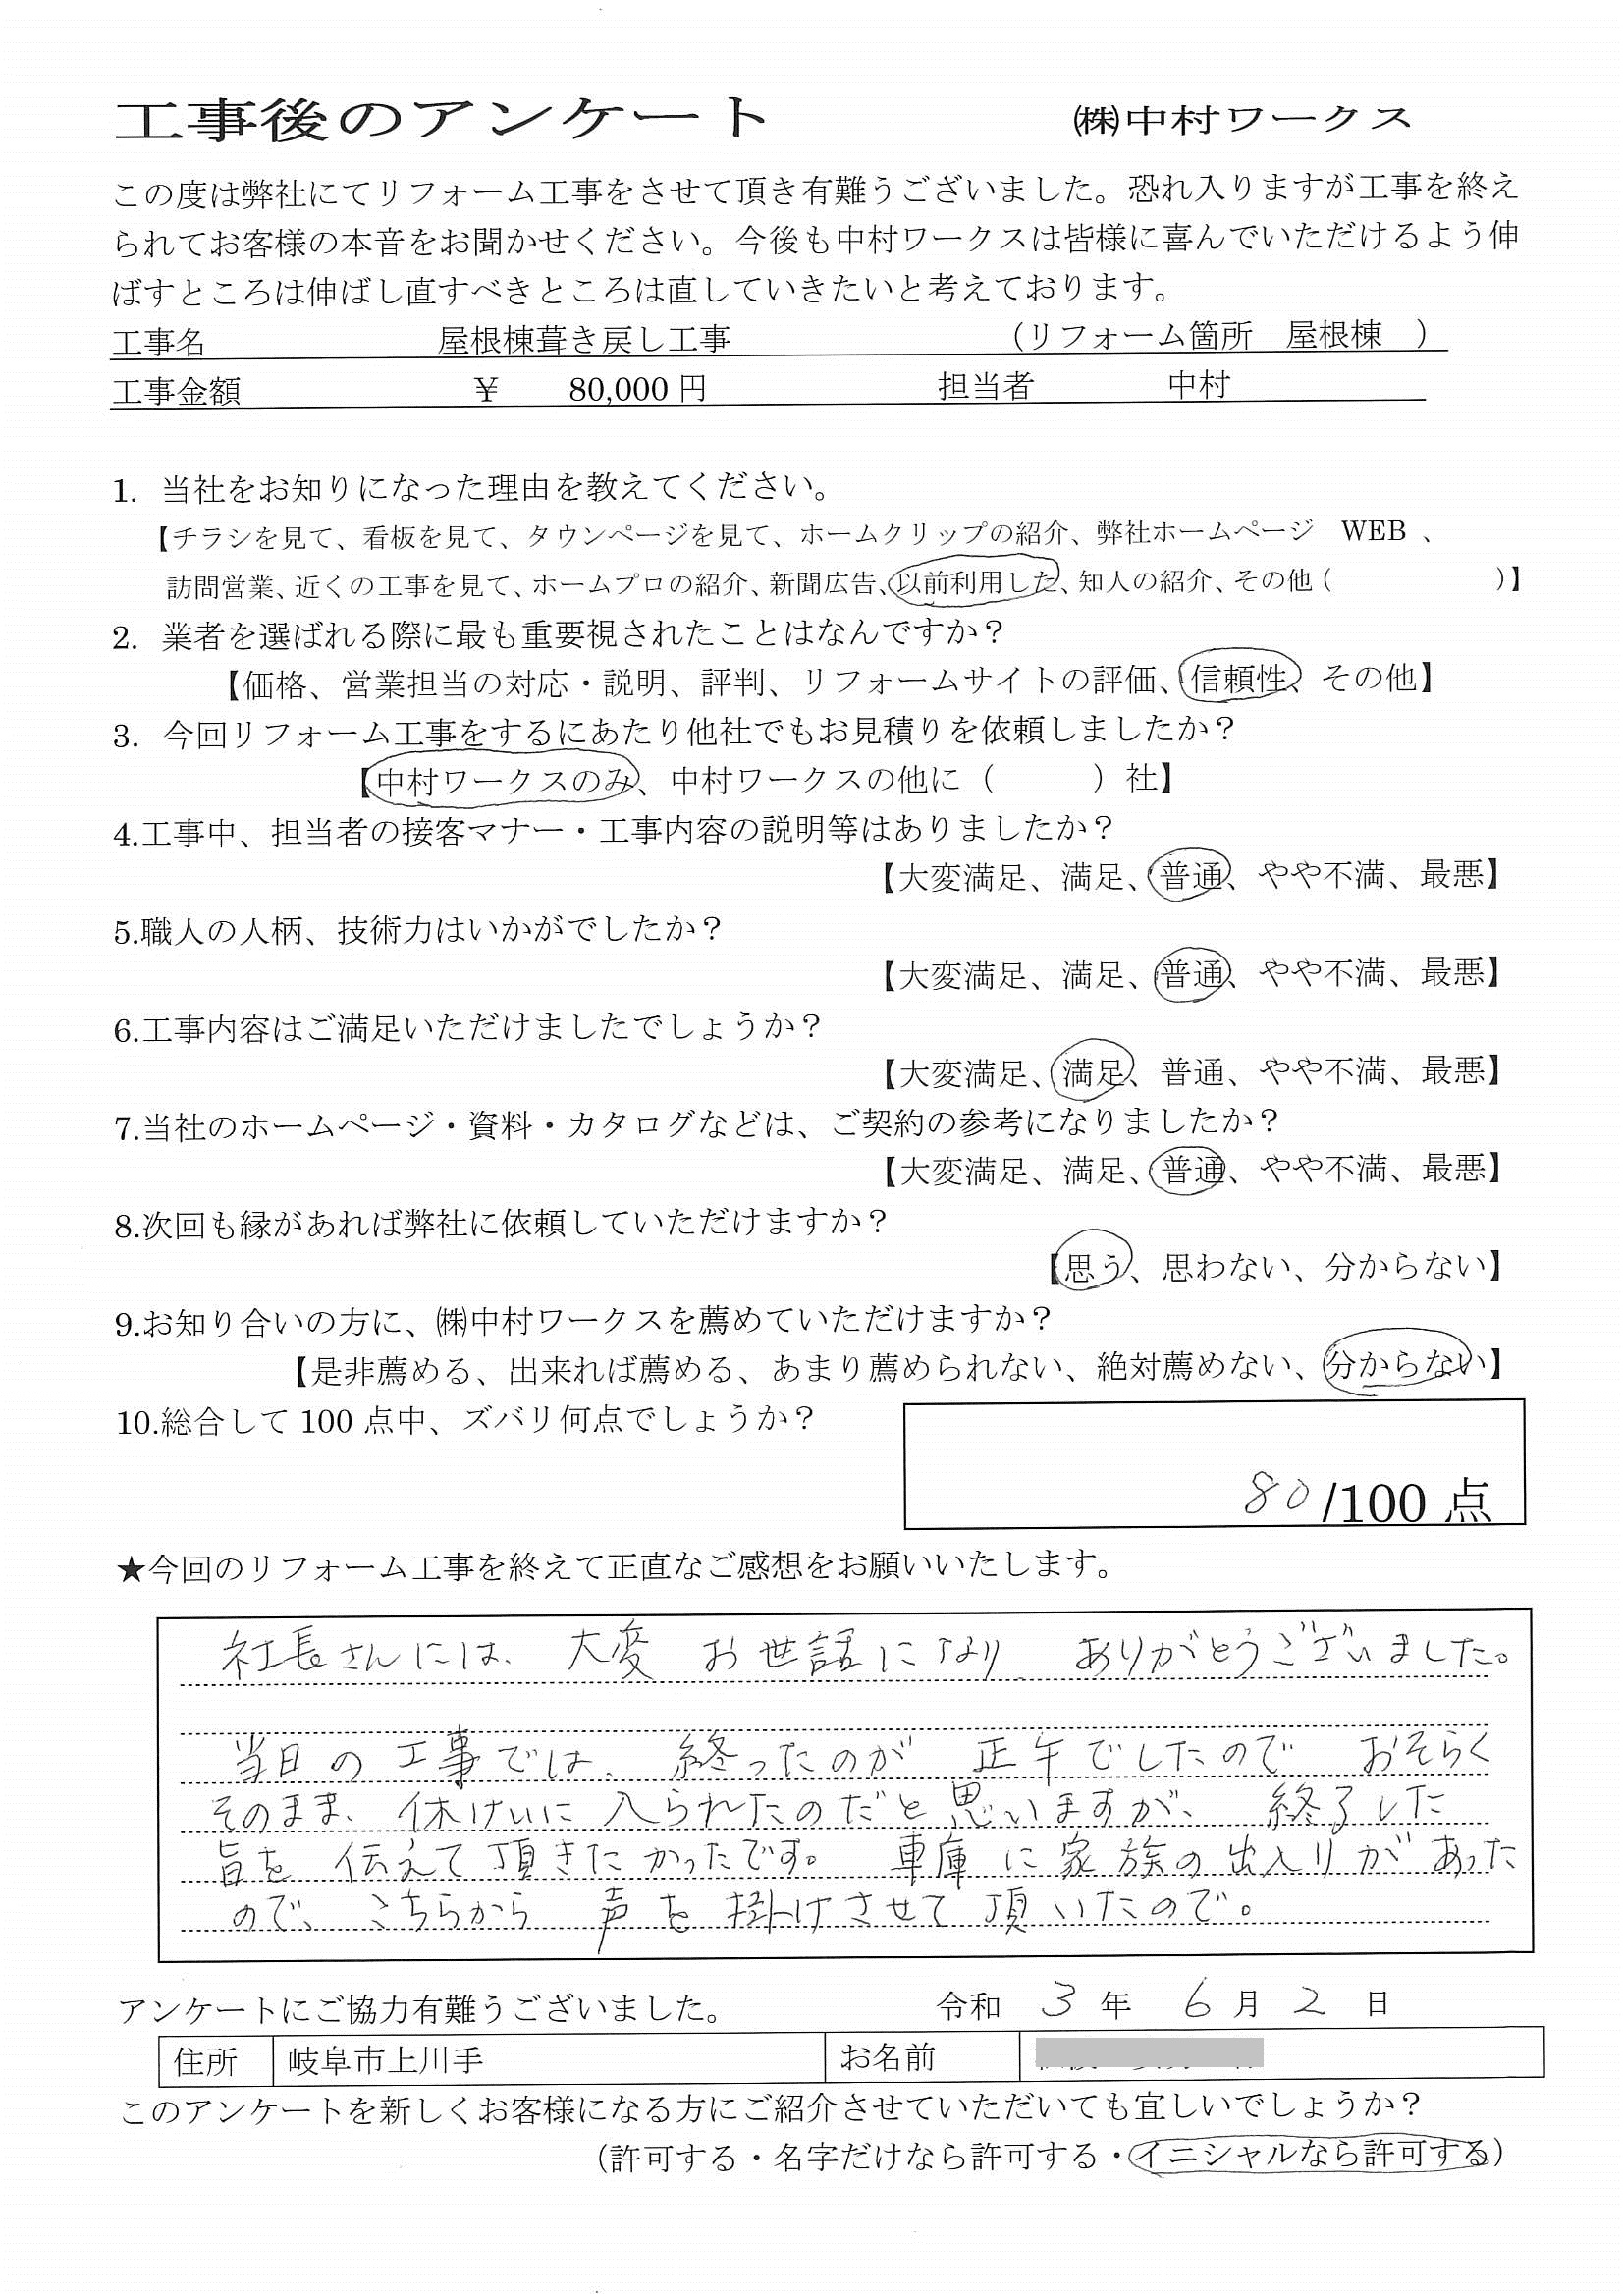 工事後のアンケート ㈱中村ワークス
この度は弊社にてリフォーム工事をさせて頂き有難うございました。恐れ入りますが工事を終え
られてお客様の本音をお聞かせください。今後も中村ワークスは皆様に喜んでいただけるよう伸
ばすところは伸ばし直すべきところは直していきたいと考えております。
工事名 屋根棟葺き戻し工事 （リフォーム箇所 屋根棟 ）
工事金額 ￥ 80,000 円 担当者 中村
1. 当社をお知りになった理由を教えてください。
【チラシを見て、看板を見て、タウンページを見て、ホームクリップの紹介、弊社ホームページ WEB 、
訪問営業、近くの工事を見て、ホームプロの紹介、新聞広告、以前利用した、知人の紹介、その他（ ）】
2. 業者を選ばれる際に最も重要視されたことはなんですか？
【価格、営業担当の対応・説明、評判、リフォームサイトの評価、信頼性、その他】
3. 今回リフォーム工事をするにあたり他社でもお見積りを依頼しましたか？
【中村ワークスのみ、中村ワークスの他に（ ）社】
4.工事中、担当者の接客マナー・工事内容の説明等はありましたか？
【大変満足、満足、普通、やや不満、最悪】
5.職人の人柄、技術力はいかがでしたか？
【大変満足、満足、普通、やや不満、最悪】
6.工事内容はご満足いただけましたでしょうか？
【大変満足、満足、普通、やや不満、最悪】
7.当社のホームページ・資料・カタログなどは、ご契約の参考になりましたか？
【大変満足、満足、普通、やや不満、最悪】
8.次回も縁があれば弊社に依頼していただけますか？
【思う、思わない、分からない】
9.お知り合いの方に、㈱中村ワークスを薦めていただけますか？
【是非薦める、出来れば薦める、あまり薦められない、絶対薦めない、分からない】
10.総合して 100 点中、ズバリ何点でしょうか？
80 /100 点
★今回のリフォーム工事を終えて正直なご感想をお願いいたします。
社長さんには、大変 お世話になり、ありがとうございました。
当日の工事では、終ったのが 正午でしたので おそらく
そのまま、休けいに入られたのだと思いますが、終了した
旨を 伝えて頂きたかったです。 車庫に家族の出入りがあった
ので、こちらから 声を掛けさせて頂いたので。
アンケートにご協力有難うございました。 令和 3 年 6 月 2 日
住所 岐阜市上川手 お名前
このアンケートを新しくお客様になる方にご紹介させていただいても宜しいでしょうか？
（許可する・名字だけなら許可する・イニシャルなら許可する）